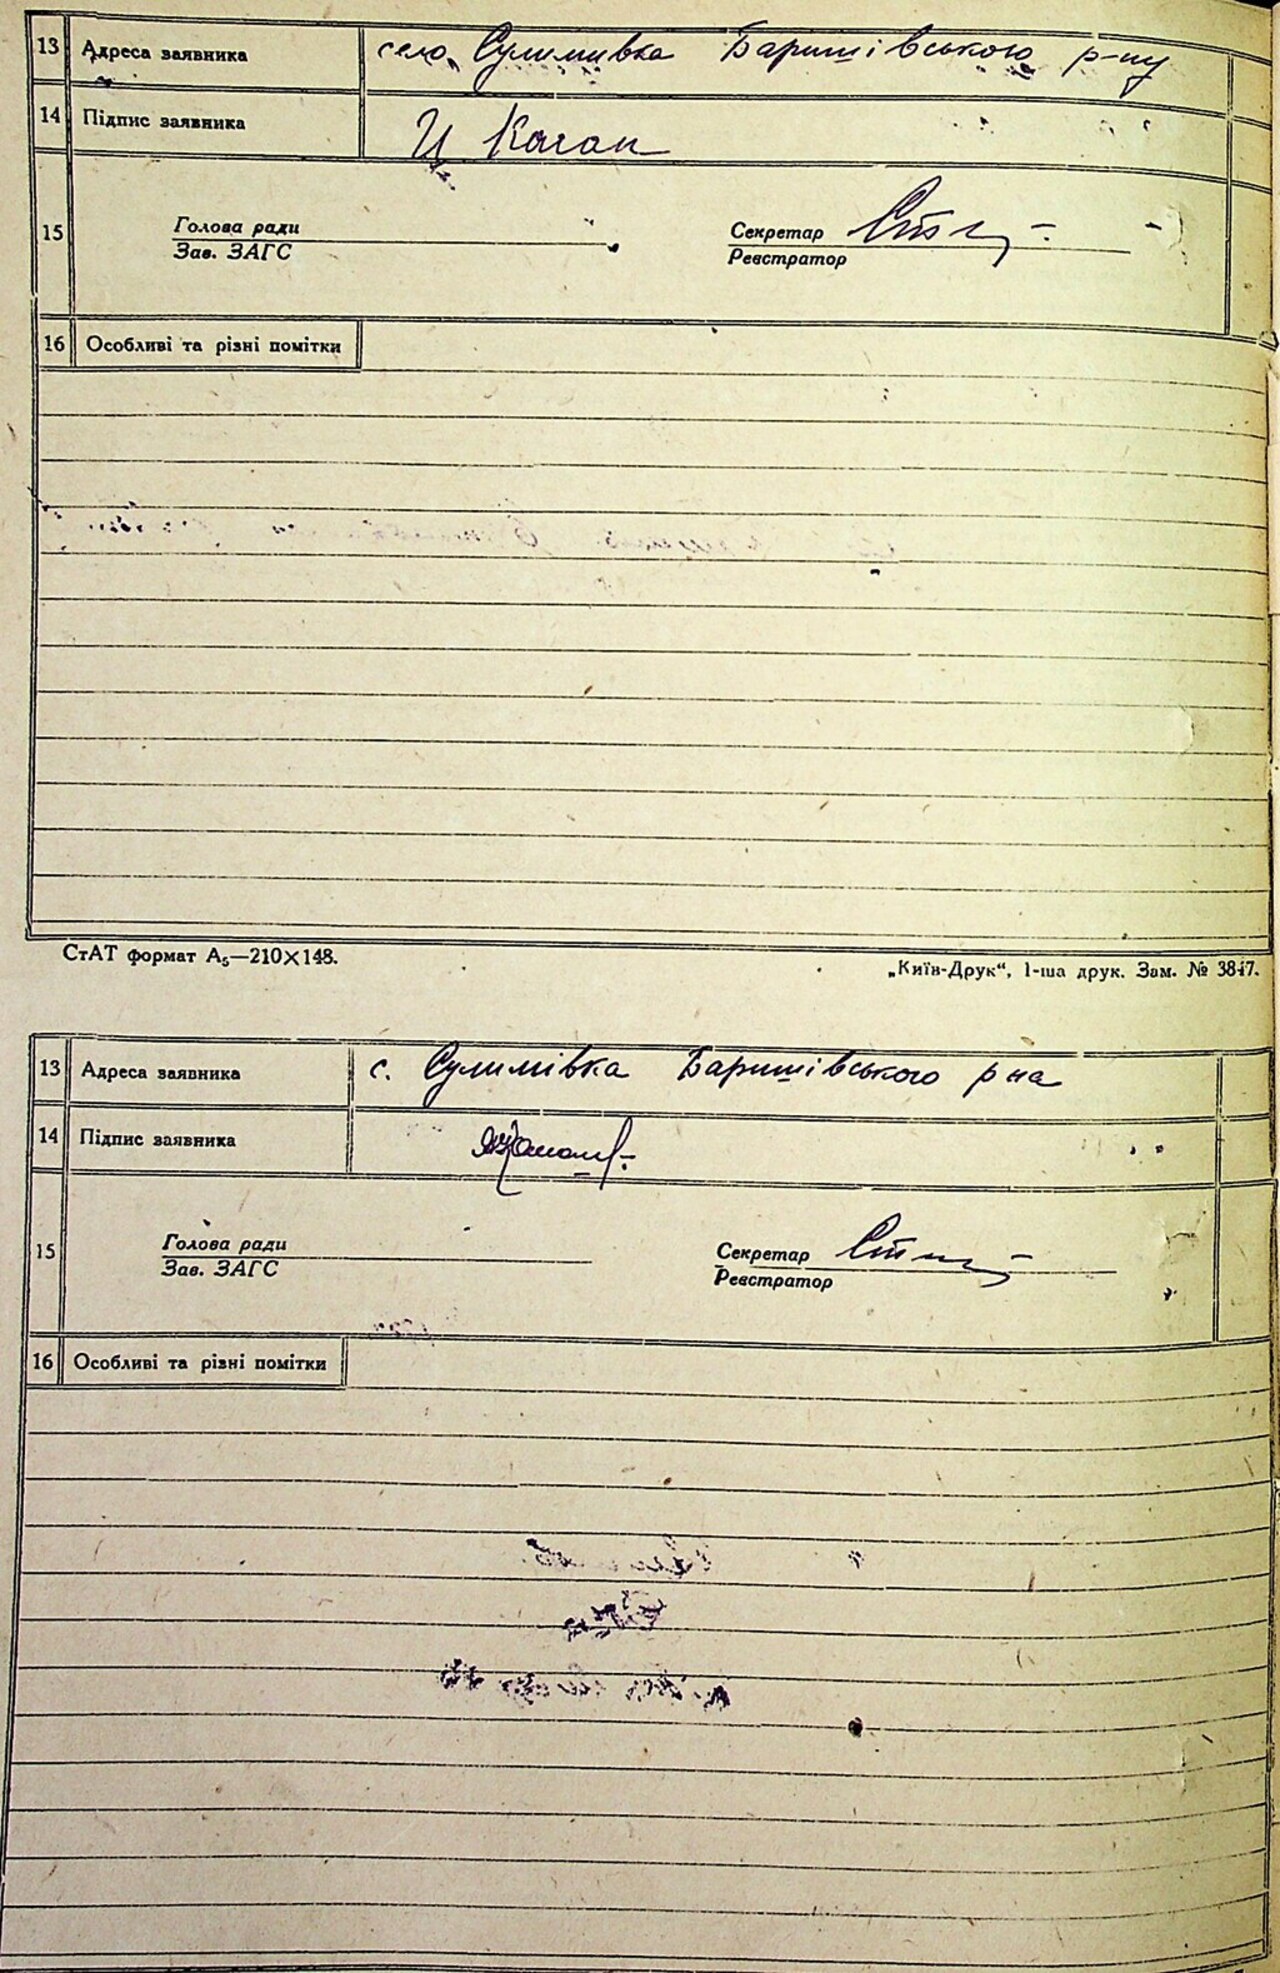 13 Адреса заявника село Сулимивка Баришівського р-ну
14 Підпис заявника И Каган
15 Голова ради
Зав. ЗАГС
Секретар
Реєстратор
16 Особливі та різні помітки
СтАТ формат А₅—210×148.
„Київ-Друк“, 1-ша друк. Зам. № 3847.
13 Адреса заявника с. Сулимівка Баришівського р на
14 Підпис заявника
15 Голова ради
Зав. ЗАГС
Секретар
Реєстратор
16 Особливі та різні помітки